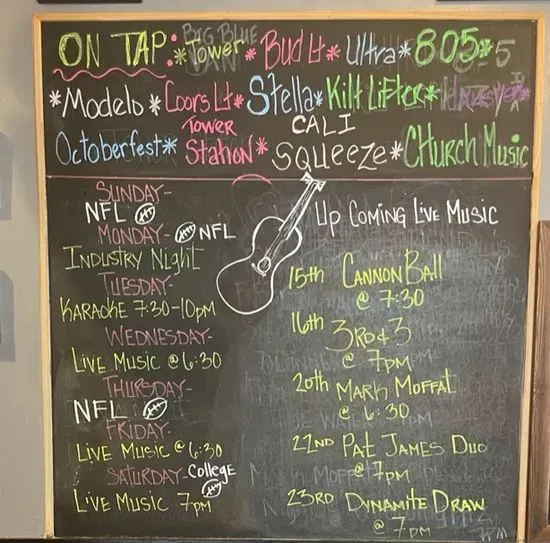 ON TAP: *Tower* Bud Lt* Ultra* 805*
*Modelo *Coors Lt* Stella* Kilt Lifter*
Octoberfest* Tower Station* CALI SQUEEZE* CHurch Music
SUNDAY-
NFL
MONDAY- NFL
INDUSTRY NIGHT
TUESDAY-
KARAOKE 7:30-10pm
WEDNESDAY-
LIVE MUSIC @ 6:30
THURSDAY-
NFL
FRIDAY-
LIVE MUSIC @ 6:30
SATURDAY- College
LIVE MUSIC 7pm
UP COMING LIVE MUSIC
15th CANNON BALL
@ 7:30
16th 3RD & 3
@ 7PM
20th MARK MOFFAT
@ 6:30
22ND PAT JAMES DUO
@ 7PM
23RD DYNAMITE DRAW
@ 7PM